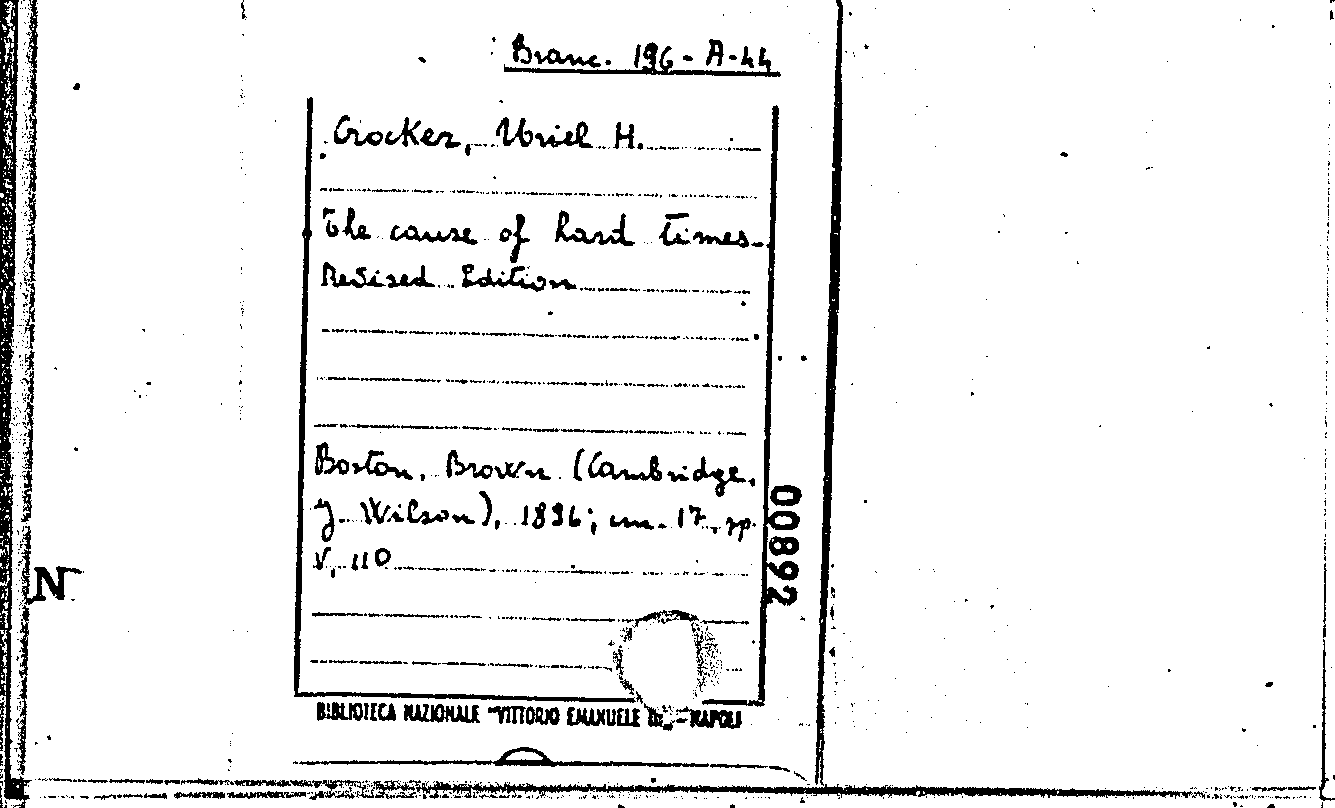 Branc. 196-A-44
Crocker, Uriel H.
The cause of hard times.
Revised Edition
Boston, Brown (Cambridge,
J. Wilson), 1896; cm. 17, pp.
V, 110
00892
N
BIBLIOTECA NAZIONALE "VITTORIO EMANUELE III" - NAPOLI